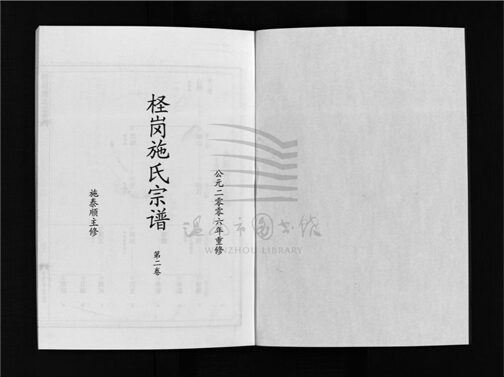 公元二零零六年重修
柽岗施氏宗谱
第二卷
施泰顺主修
温州市图书馆
WENZHOU LIBRARY